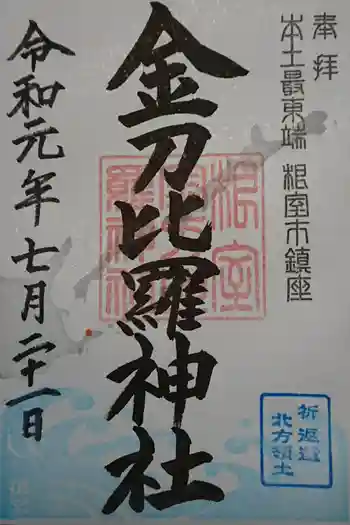 奉拝
本土最東端 根室市鎮座
根室
金刀比
羅神社
金刀比羅神社
令和元年七月二十一日
祈返還
北方領土